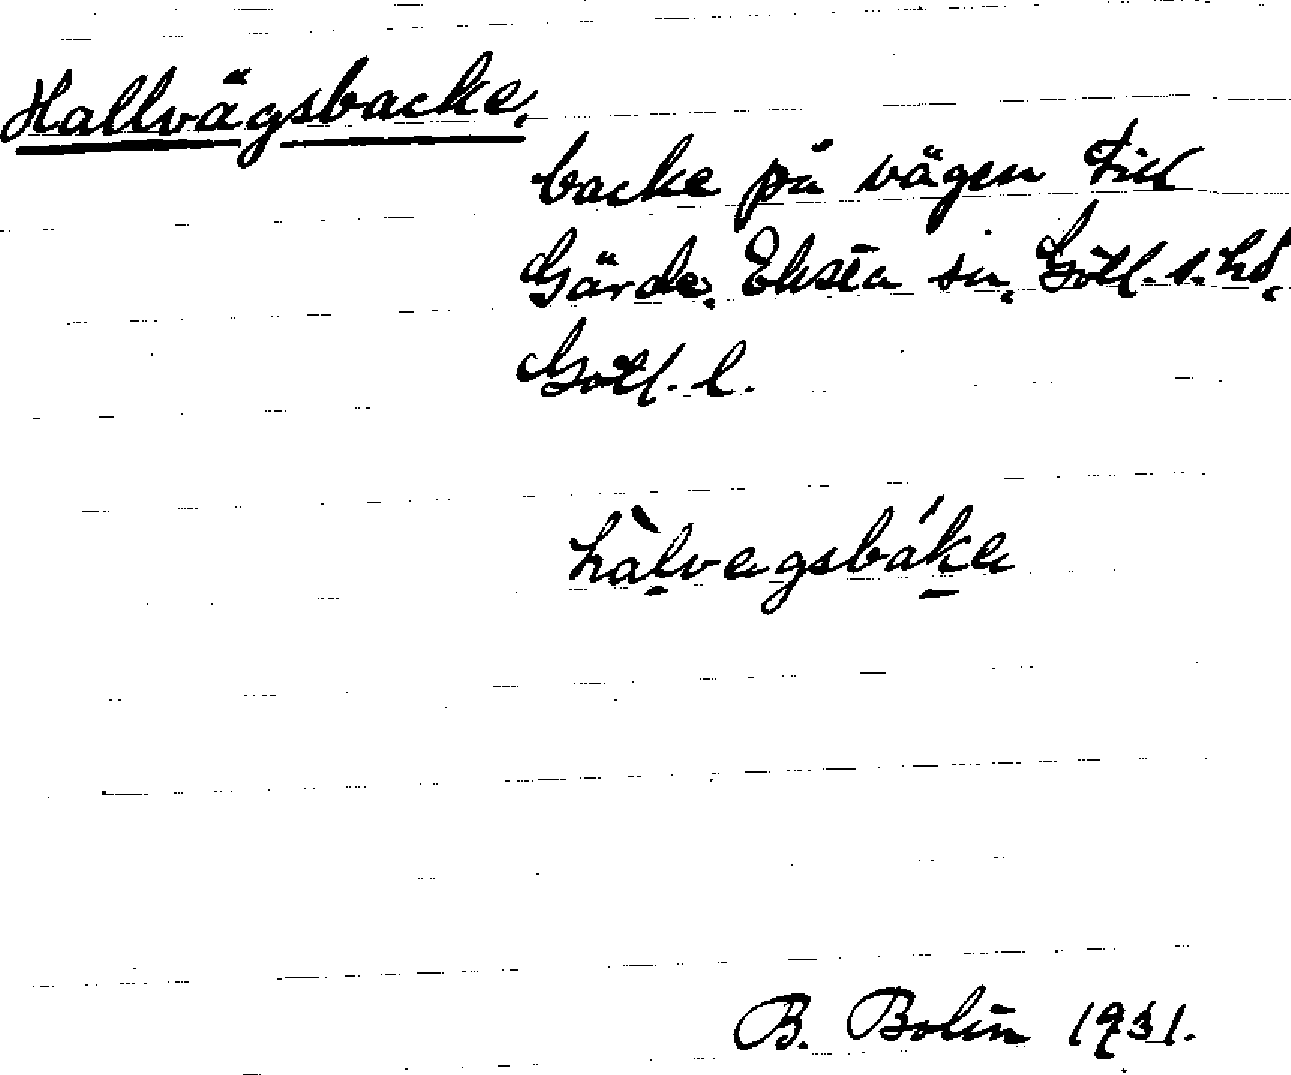 Hallvägsbacke,
backe på vägen till
Gärde, Eksta sn, Gotl. s. hd,
Gotl. l.
hàlvagsbáka
B. Bolin 1931.